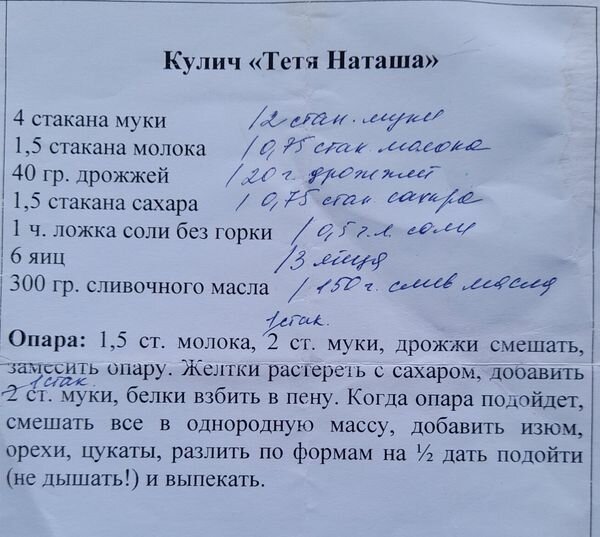 Кулич «Тетя Наташа»
4 стакана муки /2 стак. муки
1,5 стакана молока /0,75 стак молока
40 гр. дрожжей /20 г. дрожжей
1,5 стакана сахара /0,75 стак сахара
1 ч. ложка соли без горки /0,5 ч.л. соли
6 яиц /3 яйца
300 гр. сливочного масла /150 г. слив масла
1 стак.
Опара: 1,5 ст. молока, 2 ст. муки, дрожжи смешать,
замесить опару. Желтки растереть с сахаром, добавить
1 стак.
2 ст. муки, белки взбить в пену. Когда опара подойдет,
смешать все в однородную массу, добавить изюм,
орехи, цукаты, разлить по формам на ½ дать подойти
(не дышать!) и выпекать.